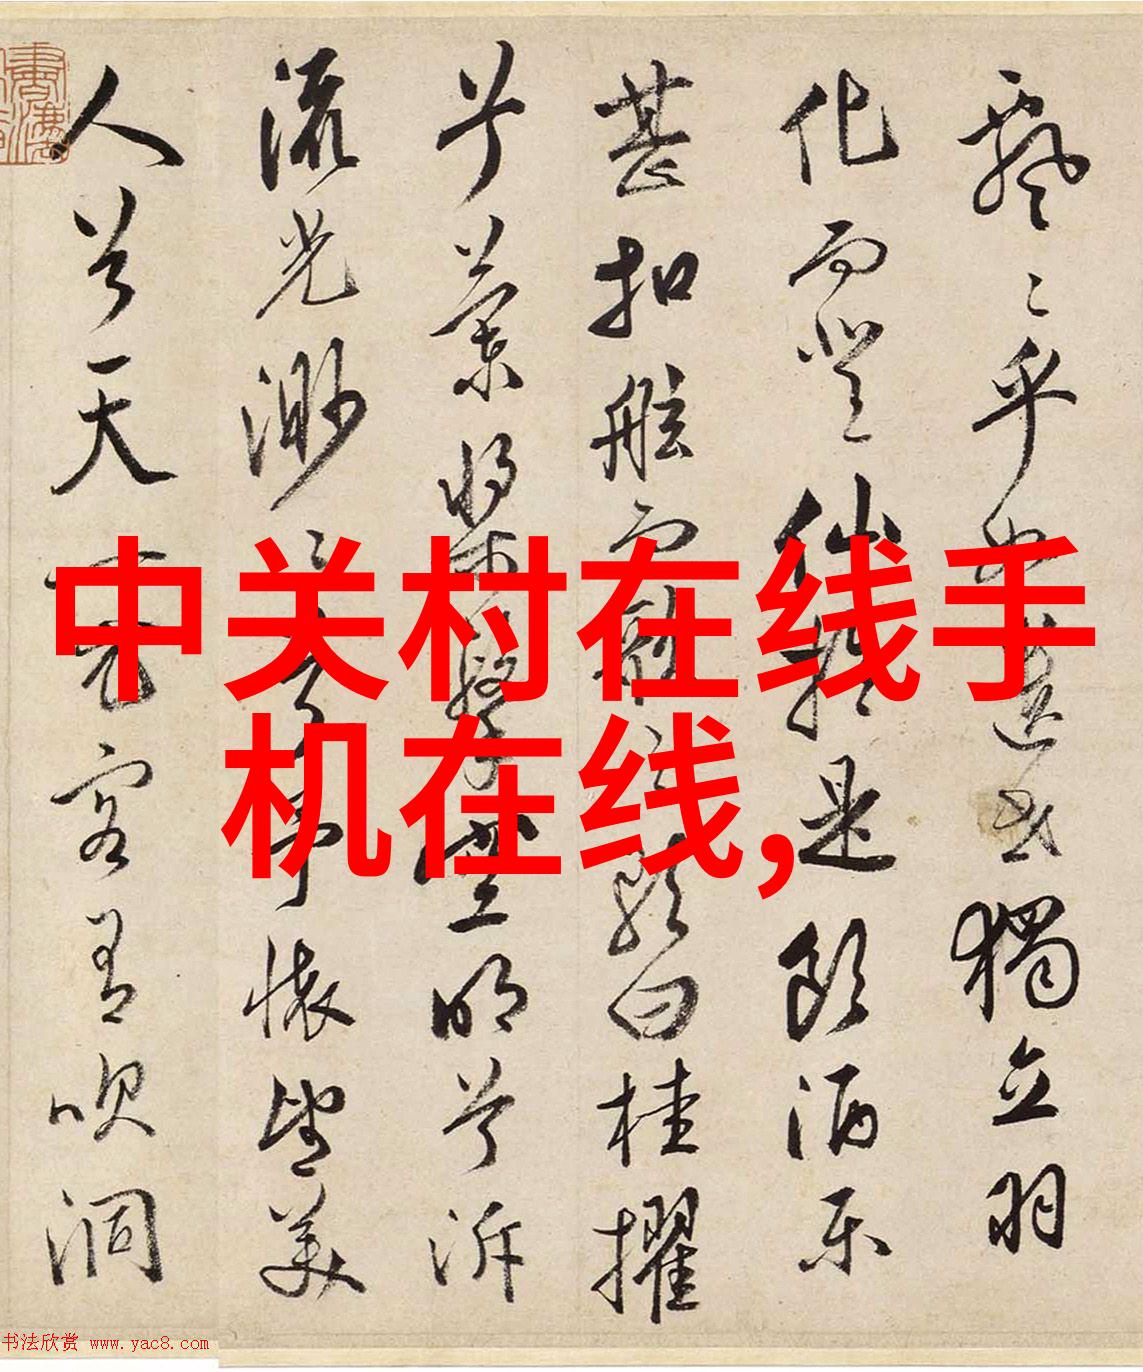 飄〻乎如遺世獨立羽
化而登仙於是飲酒樂
甚扣舷而歌之歌曰桂擢
兮蘭槳擊空明兮泝
流光渺〻兮予懷望美
人兮天一方客有吹洞
中关村在线手
机在线,
书法欣赏 www.yac8.com